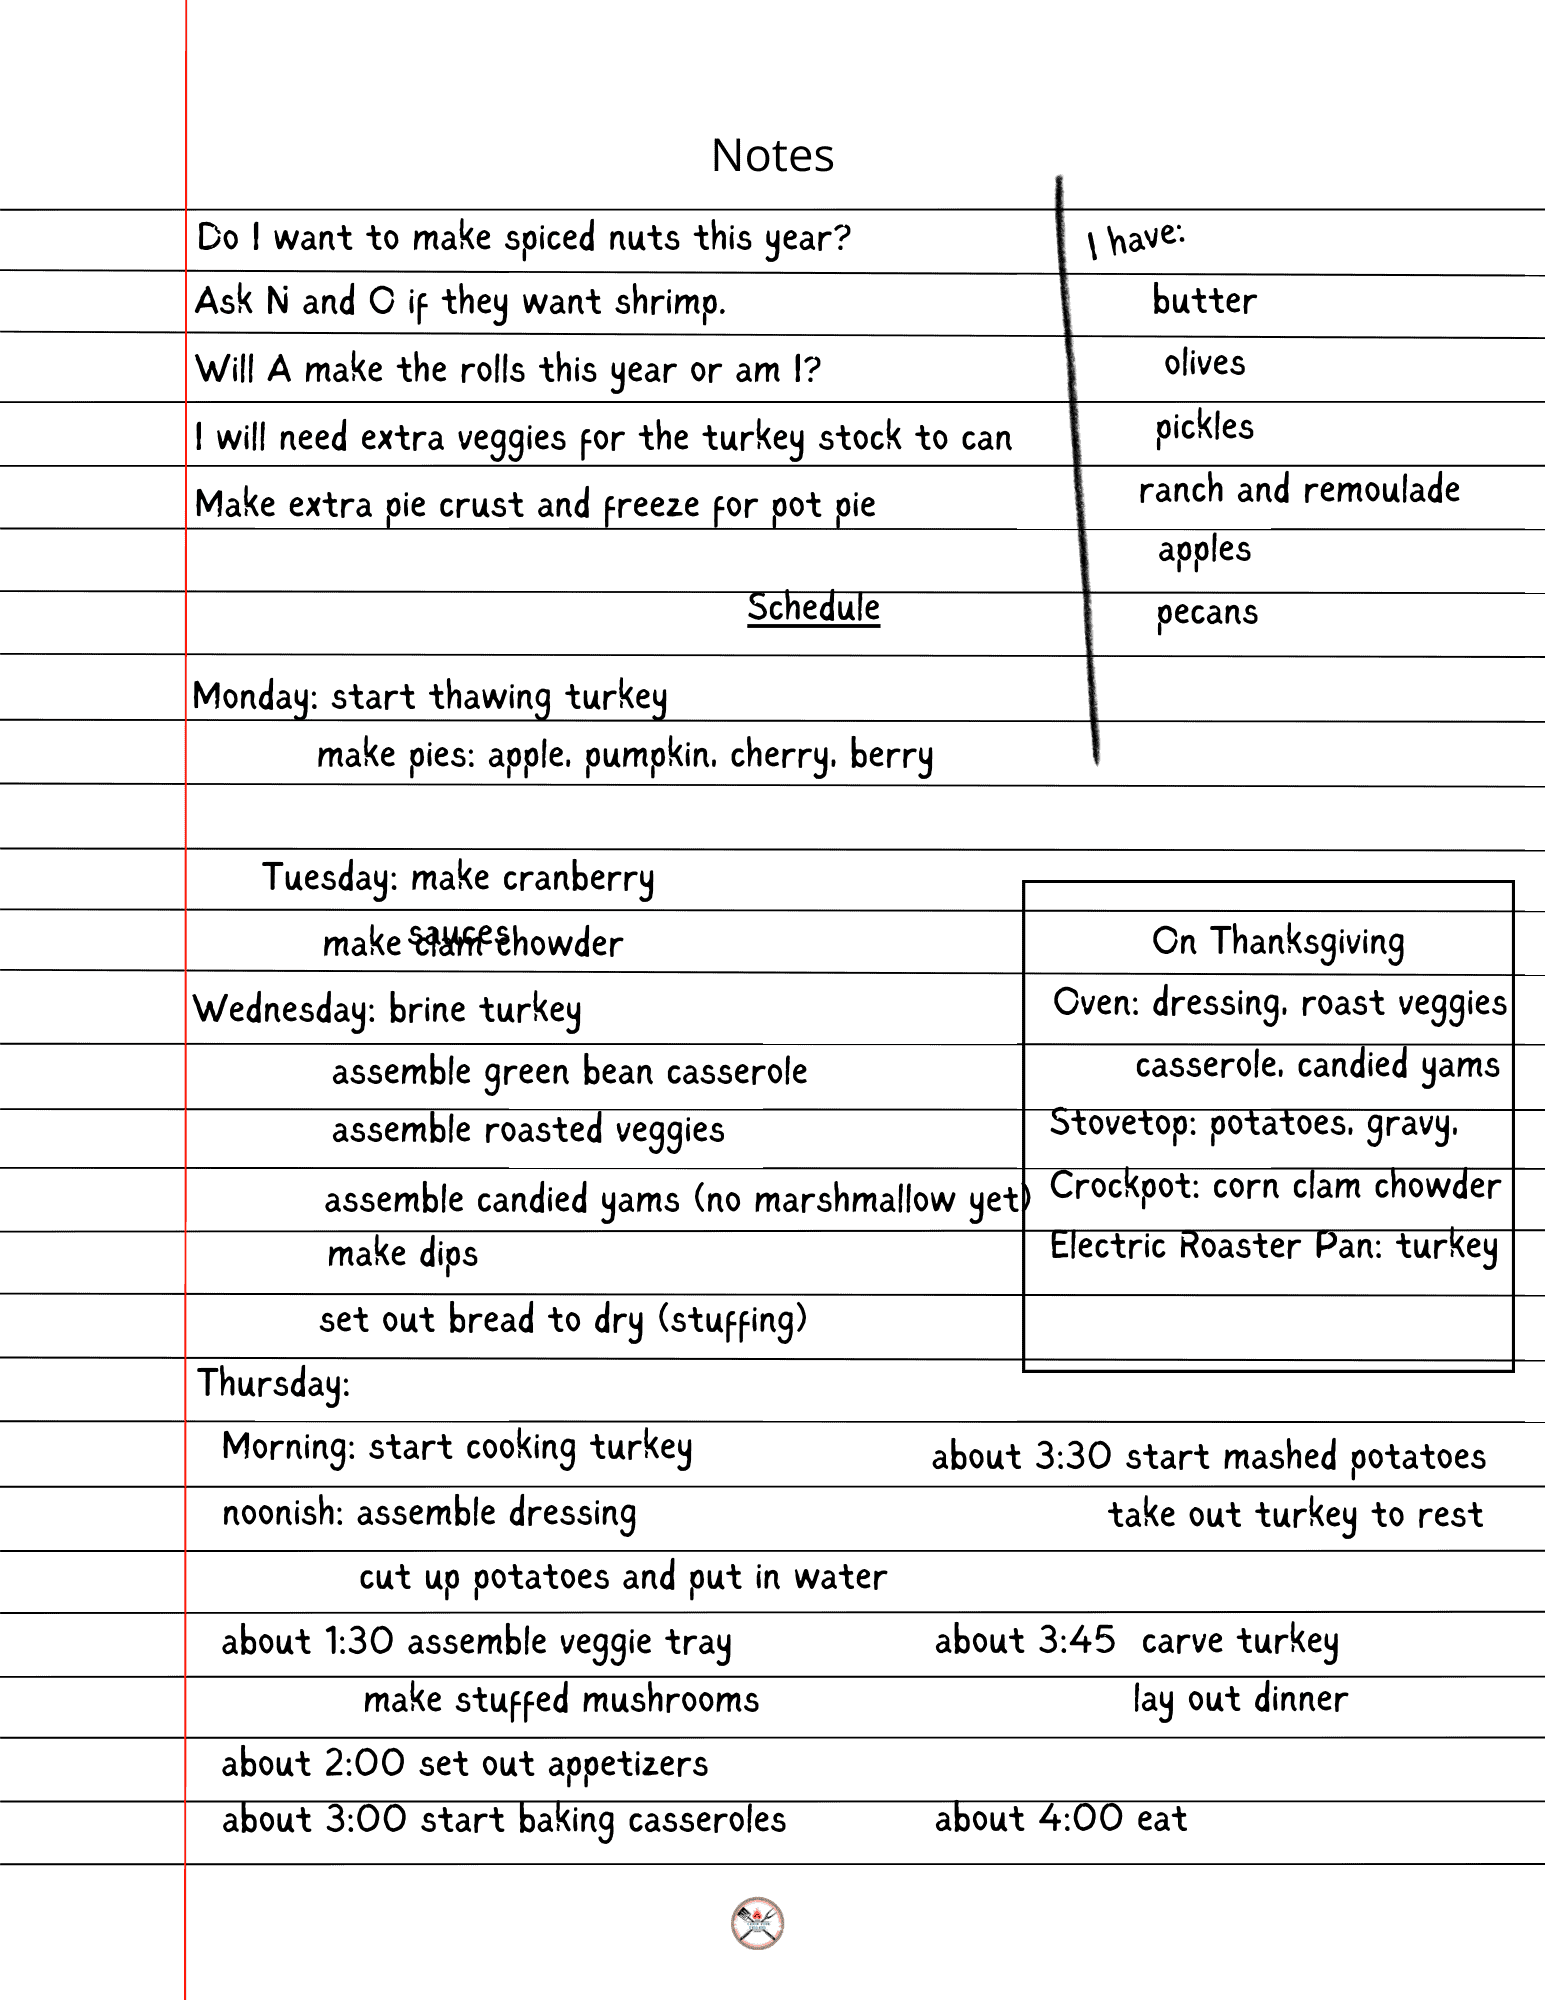 Notes
Do I want to make spiced nuts this year?
Ask N and O if they want shrimp.
Will A make the rolls this year or am I?
I will need extra veggies for the turkey stock to can
Make extra pie crust and freeze for pot pie
I have:
butter
olives
pickles
ranch and remoulade
apples
pecans
Schedule
Monday: start thawing turkey
make pies: apple, pumpkin, cherry, berry
Tuesday: make cranberry
sauces
make clam chowder
Wednesday: brine turkey
assemble green bean casserole
assemble roasted veggies
assemble candied yams (no marshmallow yet)
make dips
set out bread to dry (stuffing)
On Thanksgiving
Oven: dressing, roast veggies
casserole, candied yams
Stovetop: potatoes, gravy,
Crockpot: corn clam chowder
Electric Roaster Pan: turkey
Thursday:
Morning: start cooking turkey
noonish: assemble dressing
cut up potatoes and put in water
about 1:30 assemble veggie tray
make stuffed mushrooms
about 2:00 set out appetizers
about 3:00 start baking casseroles
about 3:30 start mashed potatoes
take out turkey to rest
about 3:45 carve turkey
lay out dinner
about 4:00 eat